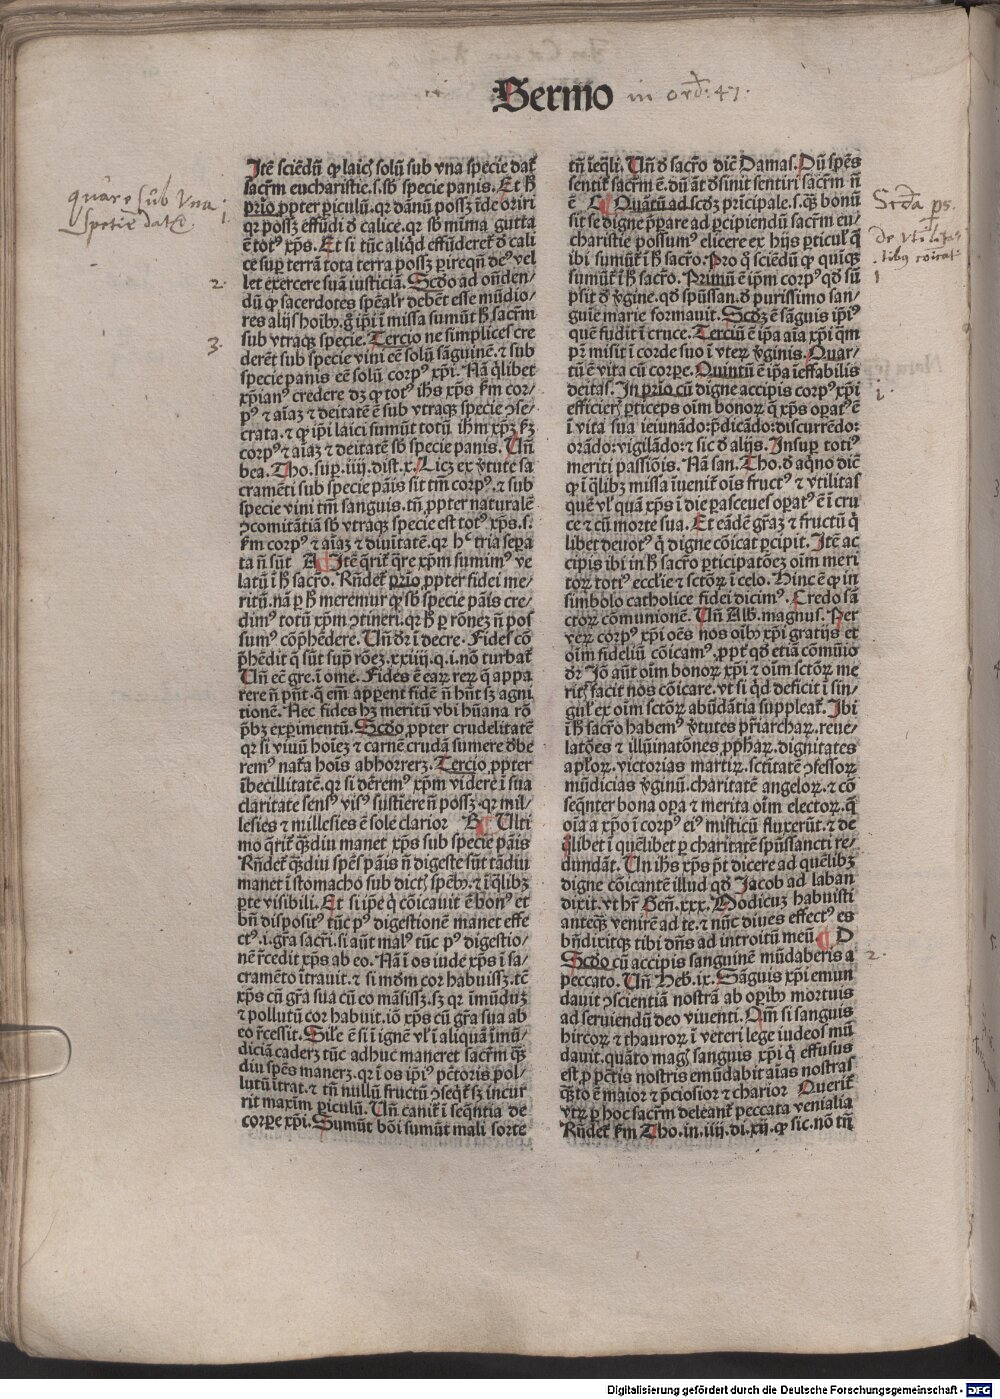 Sermo in ord: 47.
quare sub vna
spetie datr.
1
2
3.
Itē sciēdū ꝙ laicꝭ solū sub vna specie daṫ
sacrm̄ eucharistie.s.sb̄ specie panis. Et h̄
prīo ꝓpter ꝑiculū.qꝛ dānū possꝫ īde oriri
qꝛ possꝫ effūdi d̄ calice.qꝛ sb̄ mīma gutta
ē totꝰ xp̄s. Et si tūc aliqd̄ effūderet̄ d̄ cali
ce suꝑ terrā tota terra possꝫ ꝑire qn̄ deꝰ vel
let exercere suā iusticiā. Scd̄o ad oñden-
dū ꝙ sacerdotes spēalr̄ debēt esse mūdio/
res alijs hoībꝰ.gͦ ip̄i ī missa sumūt h̄ sacrm̄
sub vtraqꝫ specie. Tercio ne simplices cre
derēt sub specie vini eē solū sāguinē.⁊ sub
specie panis eē solū corpꝰ xp̄i. Nā qͥlibet
xp̄ianꝰ credere dꝫ ꝙ totꝰ ih̄s xp̄s ẜm cor-
pꝰ ⁊ aīaꝫ ⁊ deitatē ē sub vtraqꝫ specie ꝯse-
crata.⁊ ꝙ ip̄i laici sumūt totū ih̄m xp̄ꝫ ẜꝫ
corpꝰ ⁊ aīaꝫ ⁊ deitatē sb̄ specie panis. Vn̄
bea. Tho. suꝑ.iiij.dist.x. Licꝫ ex v̄tute sa
cramēti sub specie pāis sit tm̄ corpꝰ.⁊ sub
specie vini tm̄ sanguis.tn̄ ꝓpter naturalē
ꝯcomitātiā sb̄ vtraqꝫ specie est totꝰ xp̄s.s.
ẜm corpꝰ ⁊ aīaꝫ ⁊ diuītatē.qꝛ hͨ tria sepa
ta n̄ sūt A Itē qrit̄ qͣre xp̄m sumimꝰ ve
latū ī h̄ sacr̄o. Rn̄det̄ prīo ꝓpter fidei me/
ritū.nā ꝑ h̄ meremur ꝙ sb̄ specie pāis cre/
dimꝰ totū xp̄m ꝯtineri.qꝛ h̄ ꝑ rōneꝫ n̄ pos
sumꝰ cōp̄hēdere. Vn̄ dr̄ ī decre. Fides cō
p̄hēdit q̄ sūt supͣ rōeꝫ.xxiiij.q.i.nō turbat̄
Vn̄ eē gre.ī ome. Fides ē eaꝝ reꝝ q̄ appa
rere n̄ pn̄t.q̄ em̄ apparent fidē n̄ hn̄t sꝫ agni
tionē. Nec fides hꝫ meritū vbi hūana rō
p̄bꝫ exꝑimentū. Scd̄o ꝓpter crudelitatē
qꝛ si viuū hoīeꝫ ⁊ carnē crudā sumere d̄be
remꝰ natͣa hoīs abhorrerꝫ. Tercio ꝓpter
ībecillitatē.qꝛ si dēremꝰ xp̄m videre ī sua
claritate sensꝰ visꝰ sustīere n̄ possꝫ.qꝛ mil/
lesies ⁊ millesies ē sole clarior B Vlti
mo qͥrit̄ qͣꝫdiu manet xp̄s sub specie pāis
Rn̄det̄ qͣꝫdiu spēs pāis n̄ digeste sūt tādiu
manet ī stomacho sub dictꝭ spēbꝰ.⁊ ī qͣlibꝫ
ꝑte visibili. Et si ip̄e q̄ cōicauit ē bonꝰ et
bn̄ dispositꝰ tūc pꝰ digestionē manet effe
ctꝰ.i.gr̄a sacr̄i.si aūt malꝰ tūc pꝰ digestio/
nē rēcedit xp̄s ab eo. Nā ī os iude xp̄s ī sa/
cramēto ītrauit.⁊ si mōm cor habuissꝫ.tc̄
xp̄s cū gr̄a sua cū eo māsissꝫ.sꝫ qꝛ īmūduꝫ
⁊ pollutū cor habuit.iō xp̄s cū gr̄a sua ab
eo r̄cessit. Sile ē si ī ignē vl̓ ī aliquā īmū/
diciā caderꝫ tūc adhuc maneret sacrm̄ qͣꝫ
diu spēs manerꝫ.qꝛ ī os ip̄iꝰ pctōris pol/
lutū ītrat.⁊ tn̄ nullū fructū ꝯseqͥt̄ sꝫ incur
rit maxīm ꝑiculū. Vn̄ canit̄ ī seqn̄tia de
corpe xp̄i. Sumūt bōi sumūt mali sorte
tn̄ īeqͣli. Vn̄ d̄ sacr̄o dic̄ Damas. Dū sp̄es
sentit̄ sacrm̄ ē.dū aūt d̄sinit sentiri sacrm̄ n̄
ē C Quātū ad scd̄ꝫ prīcipale.s.qͣꝫ bonū
sit se digne p̄pare ad ꝑcipiendū sacrm̄ eu/
charistie possumꝰ elicere ex hijs ꝑticulꝭ q̄
ibi sumūt̄ ī h̄ sacr̄o. Pro qͦ sciēdū ꝙ quīqꝫ
sumūt̄ ī h̄ sacr̄o. Primū ē ip̄m corpꝰ qd̄ sū
psit d̄ v̄gine.qd̄ sp̄ussan.d̄ purissimo san/
guīe marie formauit. Scd̄ꝫ ē sāguis ip̄iꝰ
quē fudit ī cruce. Terciū ē ip̄a aīa xp̄i qͣm
pr̄ misit ī corde suo ī vteꝝ v̄ginis. Quar/
tū ē vita cū corꝑe. Quintū ē ip̄a īeffabilis
deitas. In prīo cū digne accipis corpꝰ xp̄i
efficierꝭ ꝑticeps oīm bonoꝝ q̄ xp̄s oꝑatꝰ ē
ī vita sua ieiunādo:p̄dicādo:discurrēdo:
orādo:vigilādo:⁊ sic d̄ alijs. Insuꝑ totiꝰ
meriti passiōis. Nā san. Tho.d̄ aqͥno dic̄
ꝙ ī qͣlibꝫ missa īuenit̄ oīs fructꝰ ⁊ vtilitas
quē vl̓ quā xp̄s ī die pasceues oꝑatꝰ ē ī cru
ce ⁊ cū morte sua. Et eādē gr̄aꝫ ⁊ fructū qͥ
libet deuotꝰ qͥ digne cōicat ꝑcipit. Itē ac
cipis ibi in h̄ sacr̄o ꝑticipatōeꝫ oīm meri
toꝝ totiꝰ ecclīe ⁊ sctōꝝ ī celo. Hinc ē ꝙ in
simbolo catholice fidei dicimꝰ. Credo sā
ctoꝝ cōmunionē. Vn̄ Alb.magnus. Per
veꝝ corpꝰ xp̄i oēs nos oībꝰ xp̄i gratijs et
oīm fideliū cōicamꝰ.ꝓpt̄ qd̄ etiā cōmūio
dr̄ Iō aūt oīm bonoꝝ xp̄i ⁊ oīm sctōꝝ me
ritꝭ facit nos cōicare.vt si qͥd deficit ī sin/
gulꝭ ex oīm sctōꝝ abūdātia suppleat̄. Ibi
ī h̄ sacr̄o habemꝰ v̄tutes pr̄iarchaꝝ.reue/
latōes ⁊ illūinatōnes ꝓphaꝝ.dignitates
ap̄loꝝ.victorias martiꝝ.sctitatē ꝯfessoꝝ
mūdicias v̄ginū.charitatē angeloꝝ.⁊ cō
seqn̄ter bona oꝑa ⁊ merita oīm electoꝝ.q̄
oīa a xp̄o ī corpꝰ eiꝰ misticū fluxerūt.⁊ de
qͦlibet ī quēlibet ꝑ charitatē sp̄ussancti re/
dundāt. Vn ih̄s xp̄s pt̄ dicere ad quēlibꝫ
digne cōicantē illud qd̄ Jacob ad laban
dixit.vt hr̄ Gen̄.xxx. Modicuꝫ habuisti
anteqͣꝫ venirē ad te.⁊ nūc diues effectꝰ es
bn̄dixitqꝫ tibi dn̄s ad introitū meū D
Scd̄o cū accipis sanguinē mūdaberis a
peccato. Vn̄ Heb.ix. Sāguis xp̄i emun
dauit ꝯscientiā nostrā ab oꝑibꝰ mortuis
ad seruiendū deo viuenti. Qm̄ si sanguis
hircoꝝ ⁊ thauroꝝ ī veteri lege iudeos mū
dauit.quāto magꝭ sanguis xp̄i qͥ effusus
est ꝓ pctīs nostris emūdabit aīas nostras
qͣꝫto ē maior ⁊ p̄ciosior ⁊ charior Querit̄
vtꝝ ꝑ hoc sacrm̄ deleant̄ peccata venialia
Rn̄det̄ ẜm Tho.in.iiij.di.xij.ꝙ sic.nō tn̄
Scd̄a ps.
de vtilita
tibꝰ
1
i.
2.
Digitalisierung gefördert durch die Deutsche Forschungsgemeinschaft - DFG